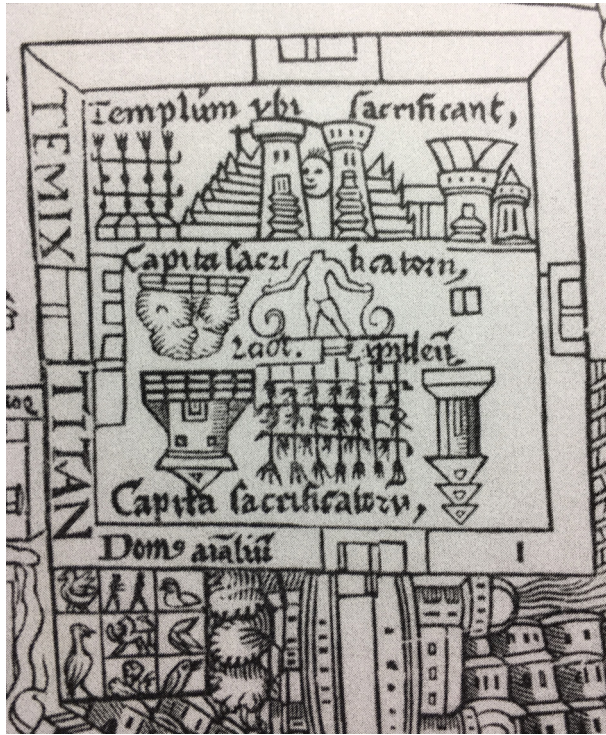 TEMIX
Templūm vbi sacrificant,
Capita sacri ficatorū,
Idol. Lapideū
TITAN
Capita sacrificatorū,
Domꝰ aīaliū